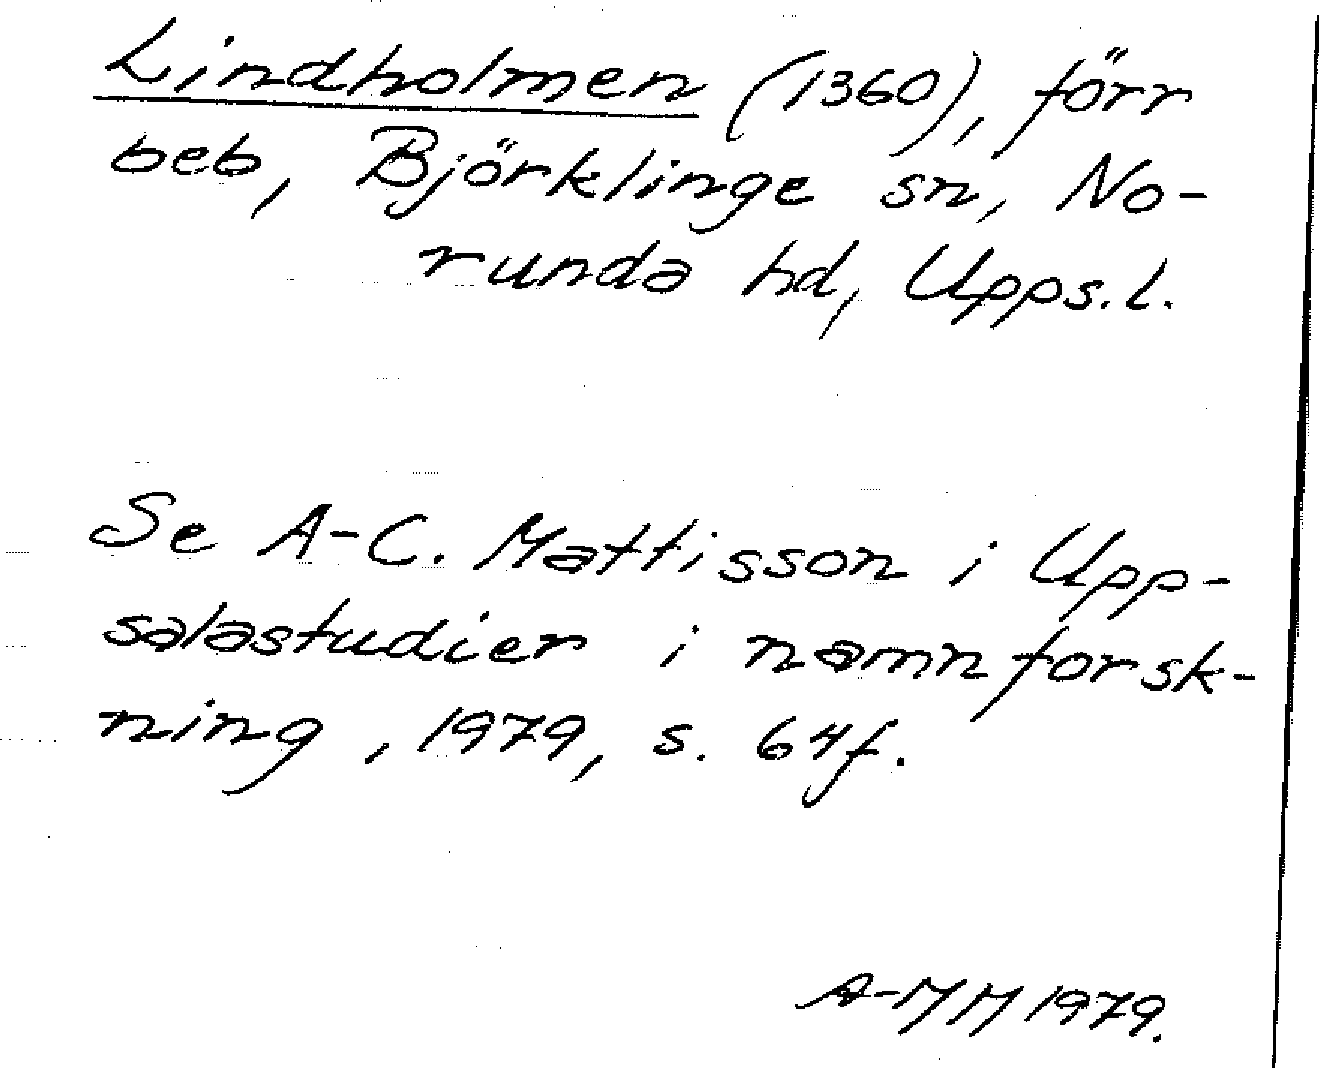 Lindholmen (1360), förr
beb, Björklinge sn, No-
runda hd, Upps.l.
Se A-C. Mattisson i Upp-
salastudier i namnforsk-
ning, 1979, s. 64f.
A-MM 1979.